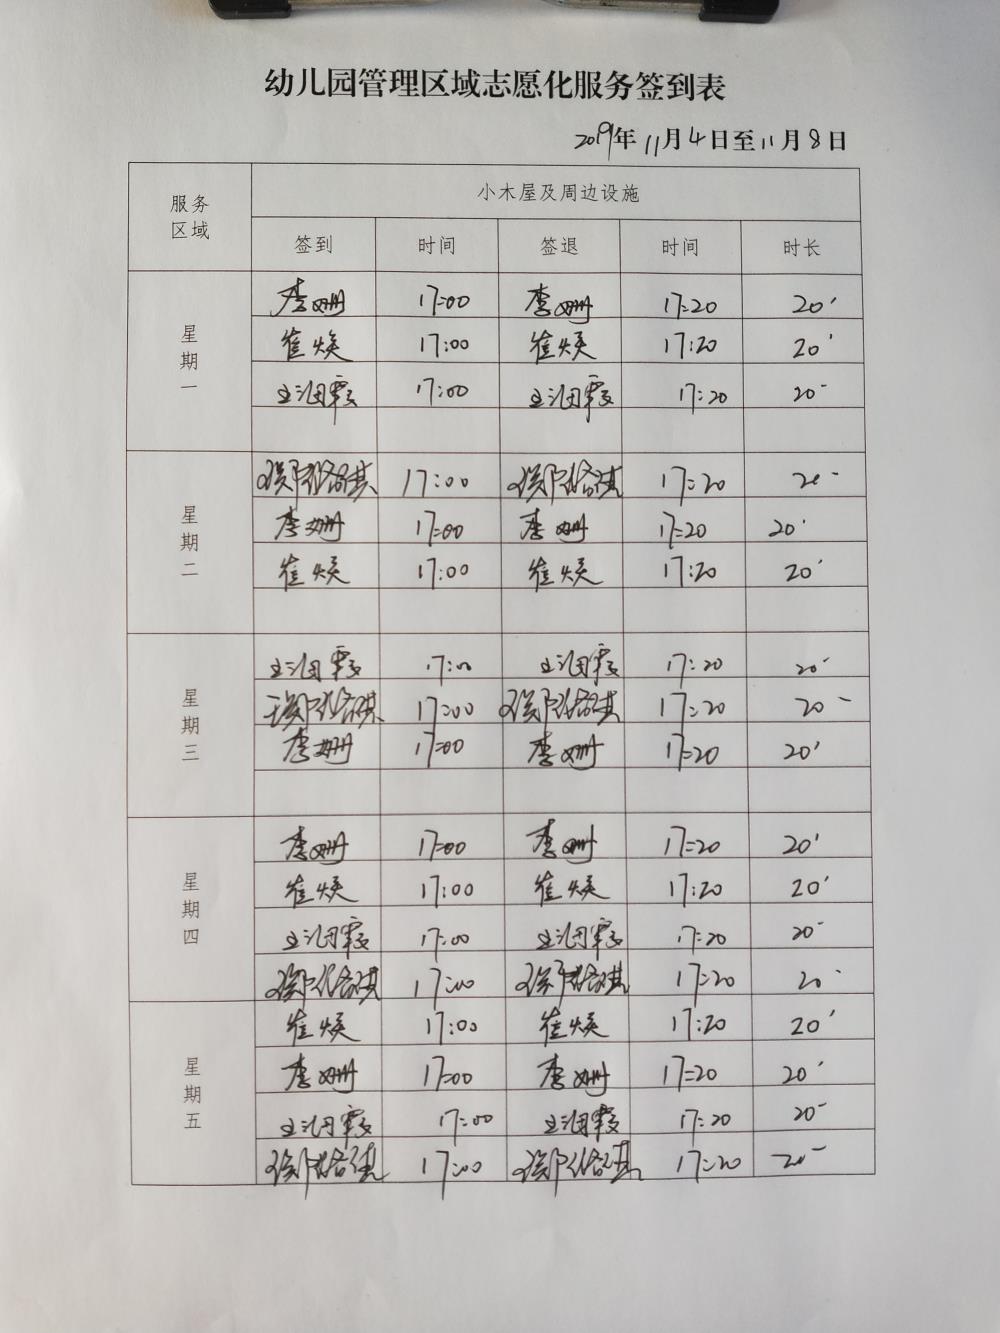 幼儿园管理区域志愿化服务签到表
2019年11月4日至11月8日
服务区域 小木屋及周边设施
签到 时间 签退 时间 时长
星期一
李姗 17:00 李姗 17:20 20'
崔焕 17:00 崔焕 17:20 20'
17:00 17:20 20'
星期二
17:00 17:20 20'
李姗 17:00 李姗 17:20 20'
崔焕 17:00 崔焕 17:20 20'
星期三
17:00 17:20 20'
17:00 17:20 20'
李姗 17:00 李姗 17:20 20'
星期四
李姗 17:00 李姗 17:20 20'
崔焕 17:00 崔焕 17:20 20'
17:00 17:20 20'
17:00 17:20 20'
星期五
崔焕 17:00 崔焕 17:20 20'
李姗 17:00 李姗 17:20 20'
17:00 17:20 20'
17:00 17:20 20'